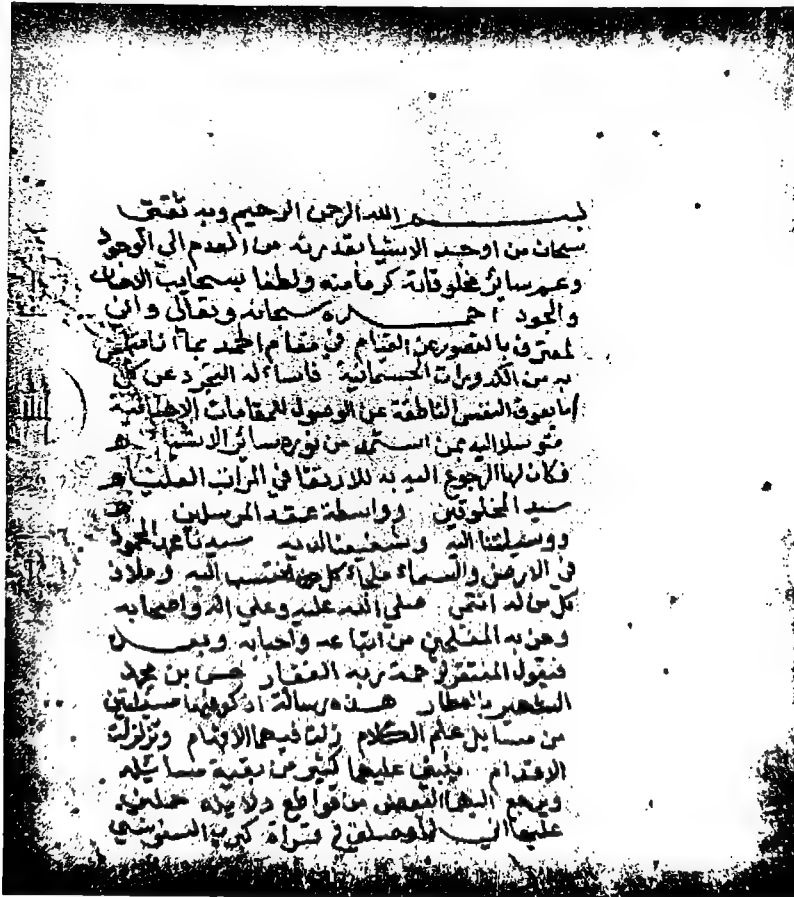 بسم الله الرحمن الرحيم وبه ثقتى
سبحان من اوجد الاشيا بقدرته من العدم الى الوجود
وعم سائر مخلوقاته كرما منه ولطفا بسحايب الاحسان
والجود احمده سبحانه وتعالى وانى
لمعترف بالقصور عن القيام في مقام الحمد بما انا متلبس
به من الكدورات الجسمانية فاساله التجرد عن كل
ما يعوق النفس الناطقة عن الوصول للمقامات الاحسانية
متوسلا اليه بمن استمد من نوره سائر الاشيا
فكان لها الرجوع اليه به للارتقا في المراتب العليا
سيد المخلوقين وواسطة عقد المرسلين
ووسيلتنا اليه وشفيعنا لديه سيدنا محمد المحمود
في الارض والسماء ملجاء كل من انتسب اليه وملاذ
كل من له انتمى صلى الله عليه وعلى اله واصحابه
ومن به المفلحين من اتباعه واحبابه وبعد
فيقول المفتقر لرحمة ربه الغفار حسن بن محمد
الشهير بالعطار هذه رسالة اذكر فيها مسئلتين
من مسايل علم الكلام زلت فيهما الاقدام وتزلزلت
الاقدام ينبني عليها كثير من بقية مسايله
ويرجع اليها البعض من قواطع دلايله حملني
عليها انى لما وصلت في قراة كبرى السنوسي